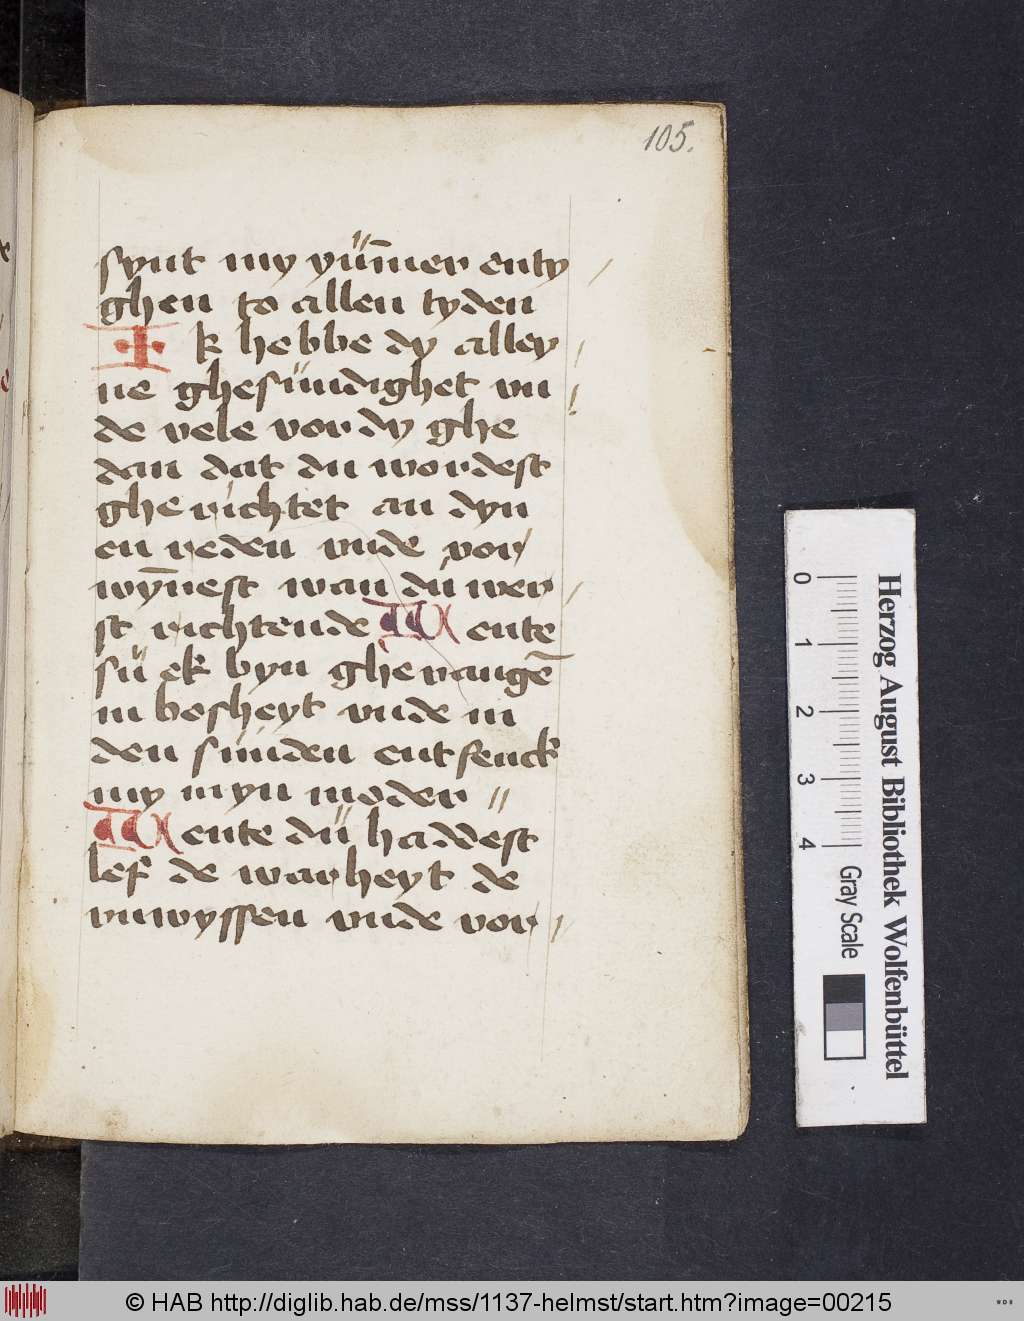 105.
synt my yüm̄er enty
ghen to allen tyden
Ik hebbe dy alley
ne ghesündighet vn
de vele vor dy ghe
dan dat du wordest
gherichtet an dyn
en reden vnde vor
wȳnest wan du wer
st richtende Wente
sü ek byn ghevangē
in bosheyt vnde in
den sünden entfenck
my myn moder
Wente dü haddest
lef de warheyt de
vnwyssen vnde vor
0 1 2 3 4
Gray Scale
Herzog August Bibliothek Wolfenbüttel
© HAB http://diglib.hab.de/mss/1137-helmst/start.htm?image=00215